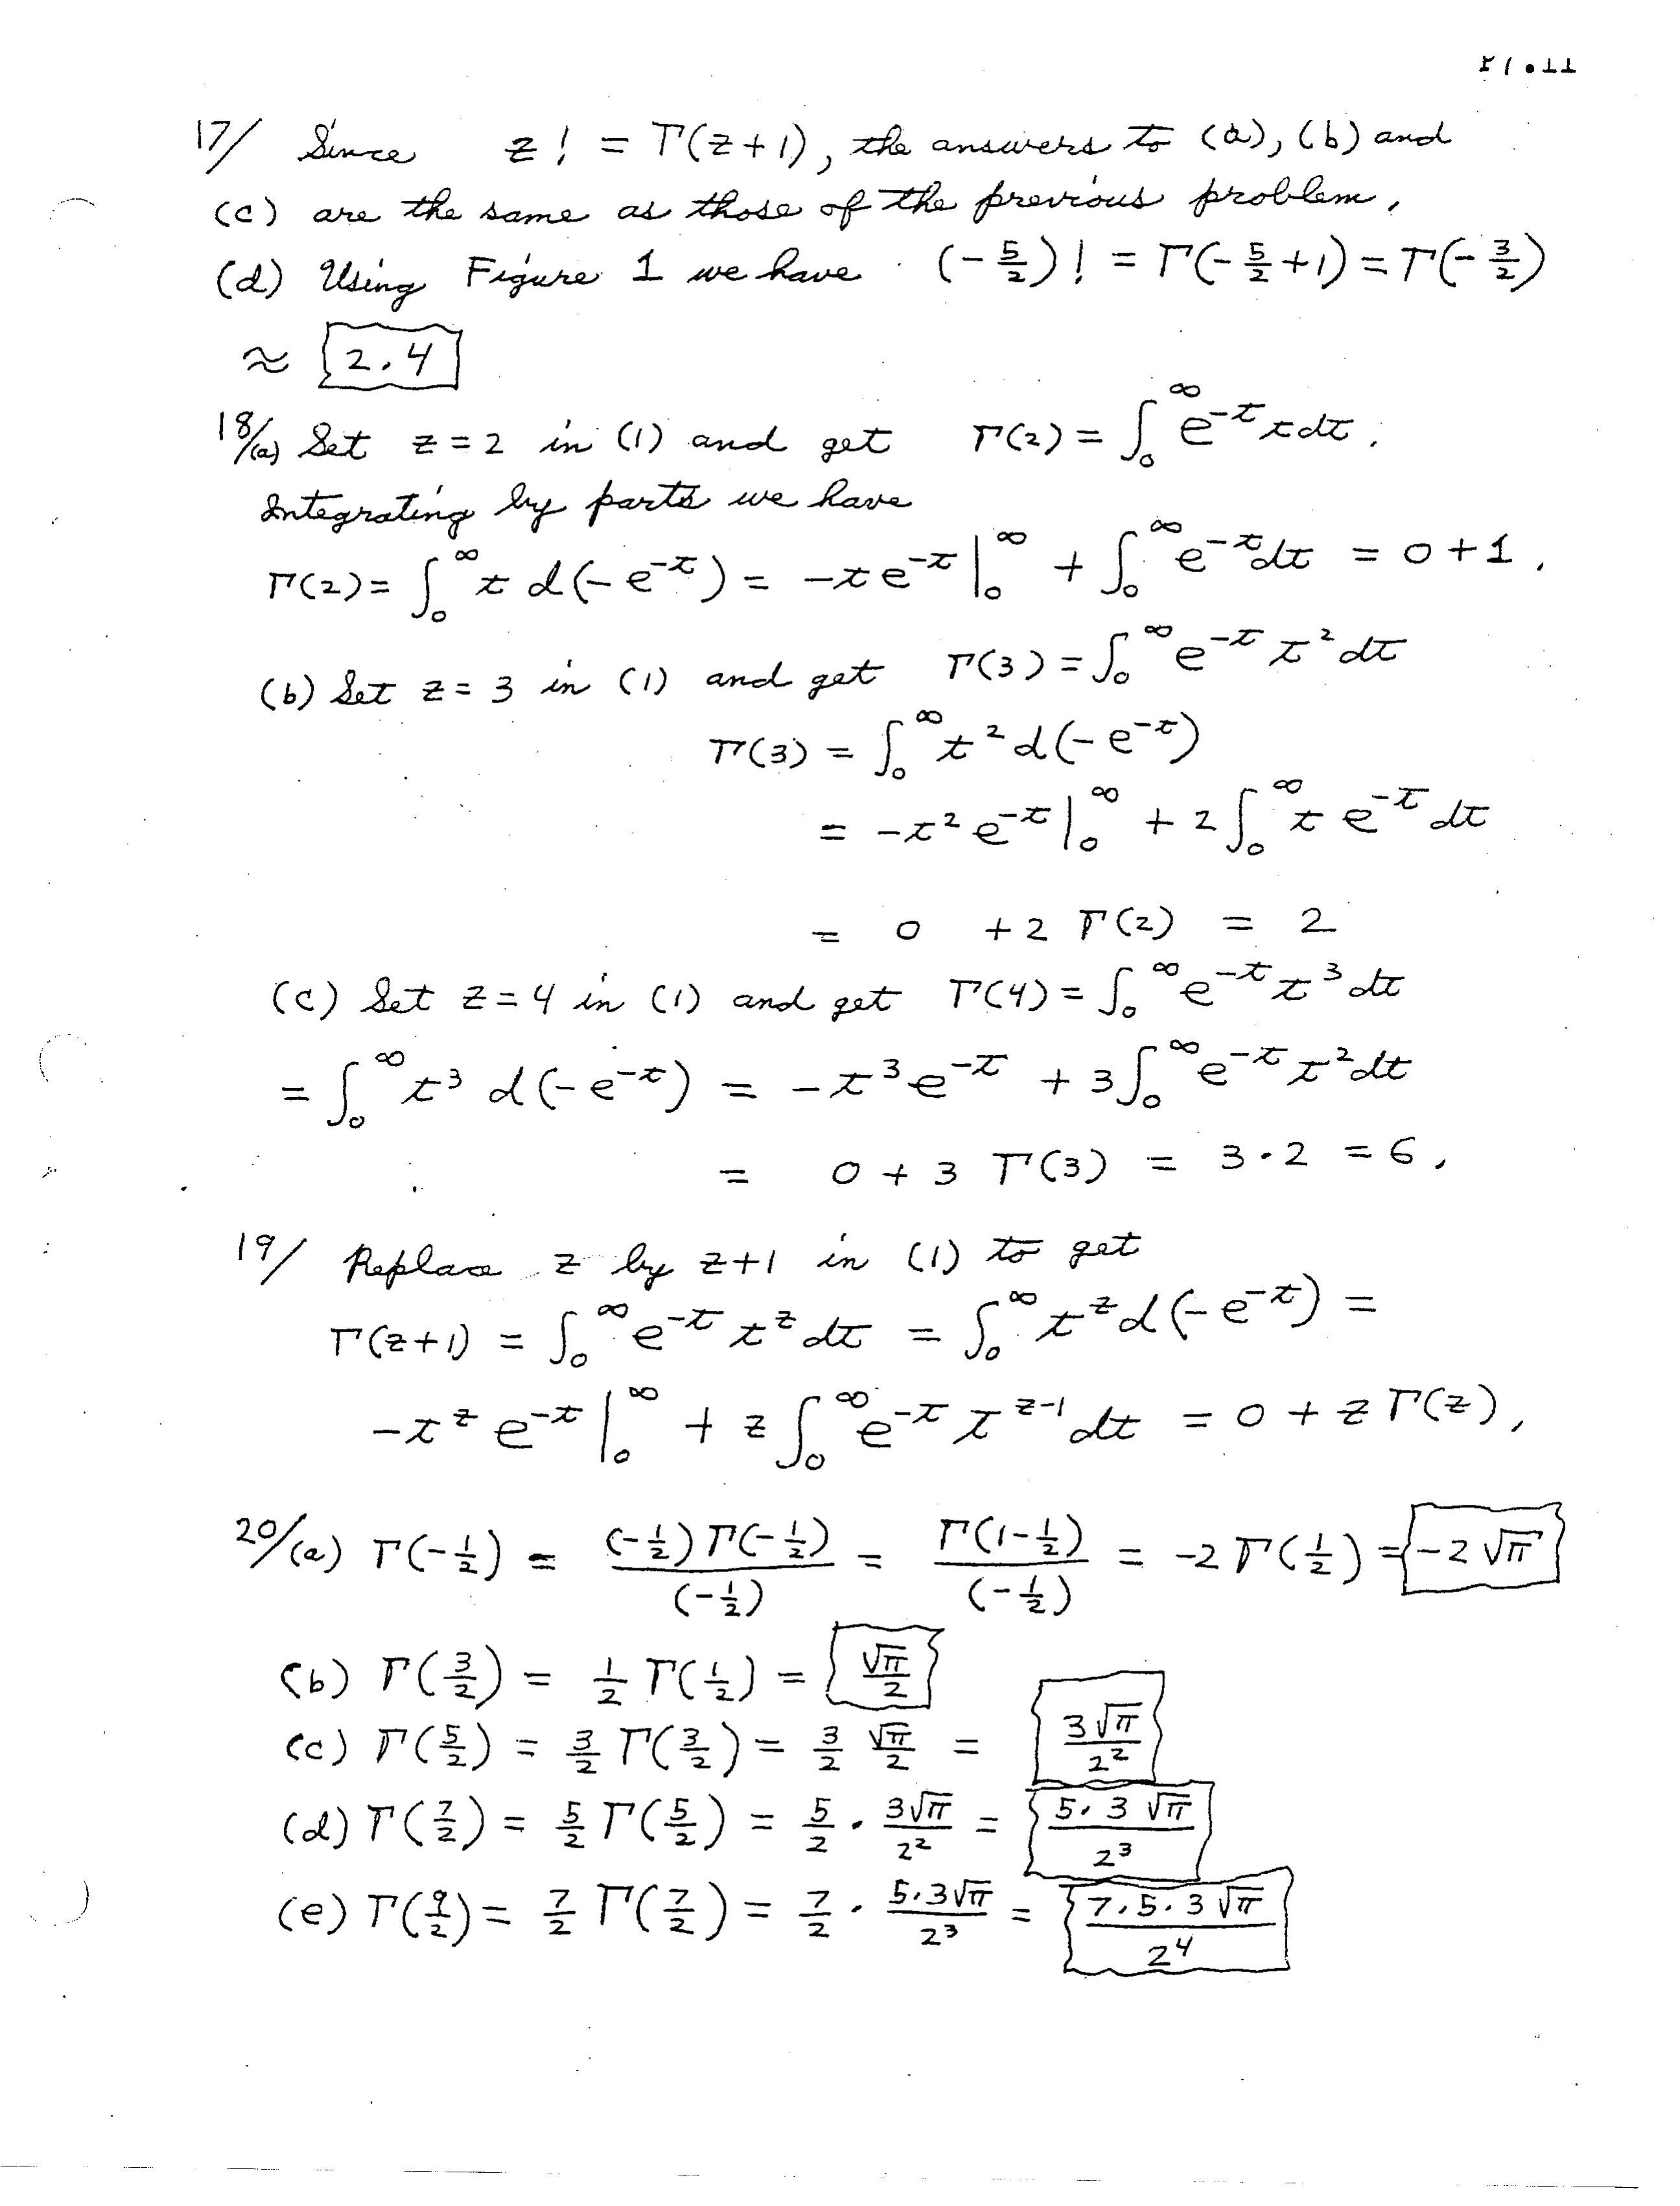 17/ Since z! = Γ(z+1), the answers to (a), (b) and
(c) are the same as those of the previous problem.
(d) Using Figure 1 we have (-5/2)! = Γ(-5/2+1) = Γ(-3/2)
≈ 2.4
18/(a) Set z=2 in (1) and get Γ(2) = ∫₀^∞ e^{-t} t dt.
Integrating by parts we have
Γ(2) = ∫₀^∞ t d(-e^{-t}) = -t e^{-t} |₀^∞ + ∫₀^∞ e^{-t} dt = 0+1.
(b) Set z=3 in (1) and get Γ(3) = ∫₀^∞ e^{-t} t² dt
Γ(3) = ∫₀^∞ t² d(-e^{-t})
= -t² e^{-t} |₀^∞ + 2∫₀^∞ t e^{-t} dt
= 0 + 2 Γ(2) = 2
(c) Set z=4 in (1) and get Γ(4) = ∫₀^∞ e^{-t} t³ dt
= ∫₀^∞ t³ d(-e^{-t}) = -t³ e^{-t} + 3∫₀^∞ e^{-t} t² dt
= 0 + 3 Γ(3) = 3·2 = 6.
19/ Replace z by z+1 in (1) to get
Γ(z+1) = ∫₀^∞ e^{-t} t^z dt = ∫₀^∞ t^z d(-e^{-t}) =
-t^z e^{-t} |₀^∞ + z ∫₀^∞ e^{-t} t^{z-1} dt = 0 + z Γ(z),
20/(a) Γ(-1/2) = (-1/2)Γ(-1/2)/(-1/2) = Γ(1-1/2)/(-1/2) = -2 Γ(1/2) = -2√π
(b) Γ(3/2) = 1/2 Γ(1/2) = √π/2
(c) Γ(5/2) = 3/2 Γ(3/2) = 3/2 √π/2 = 3√π/2²
(d) Γ(7/2) = 5/2 Γ(5/2) = 5/2 · 3√π/2² = 5·3√π/2³
(e) Γ(9/2) = 7/2 Γ(7/2) = 7/2 · 5·3√π/2³ = 7·5·3√π/2⁴